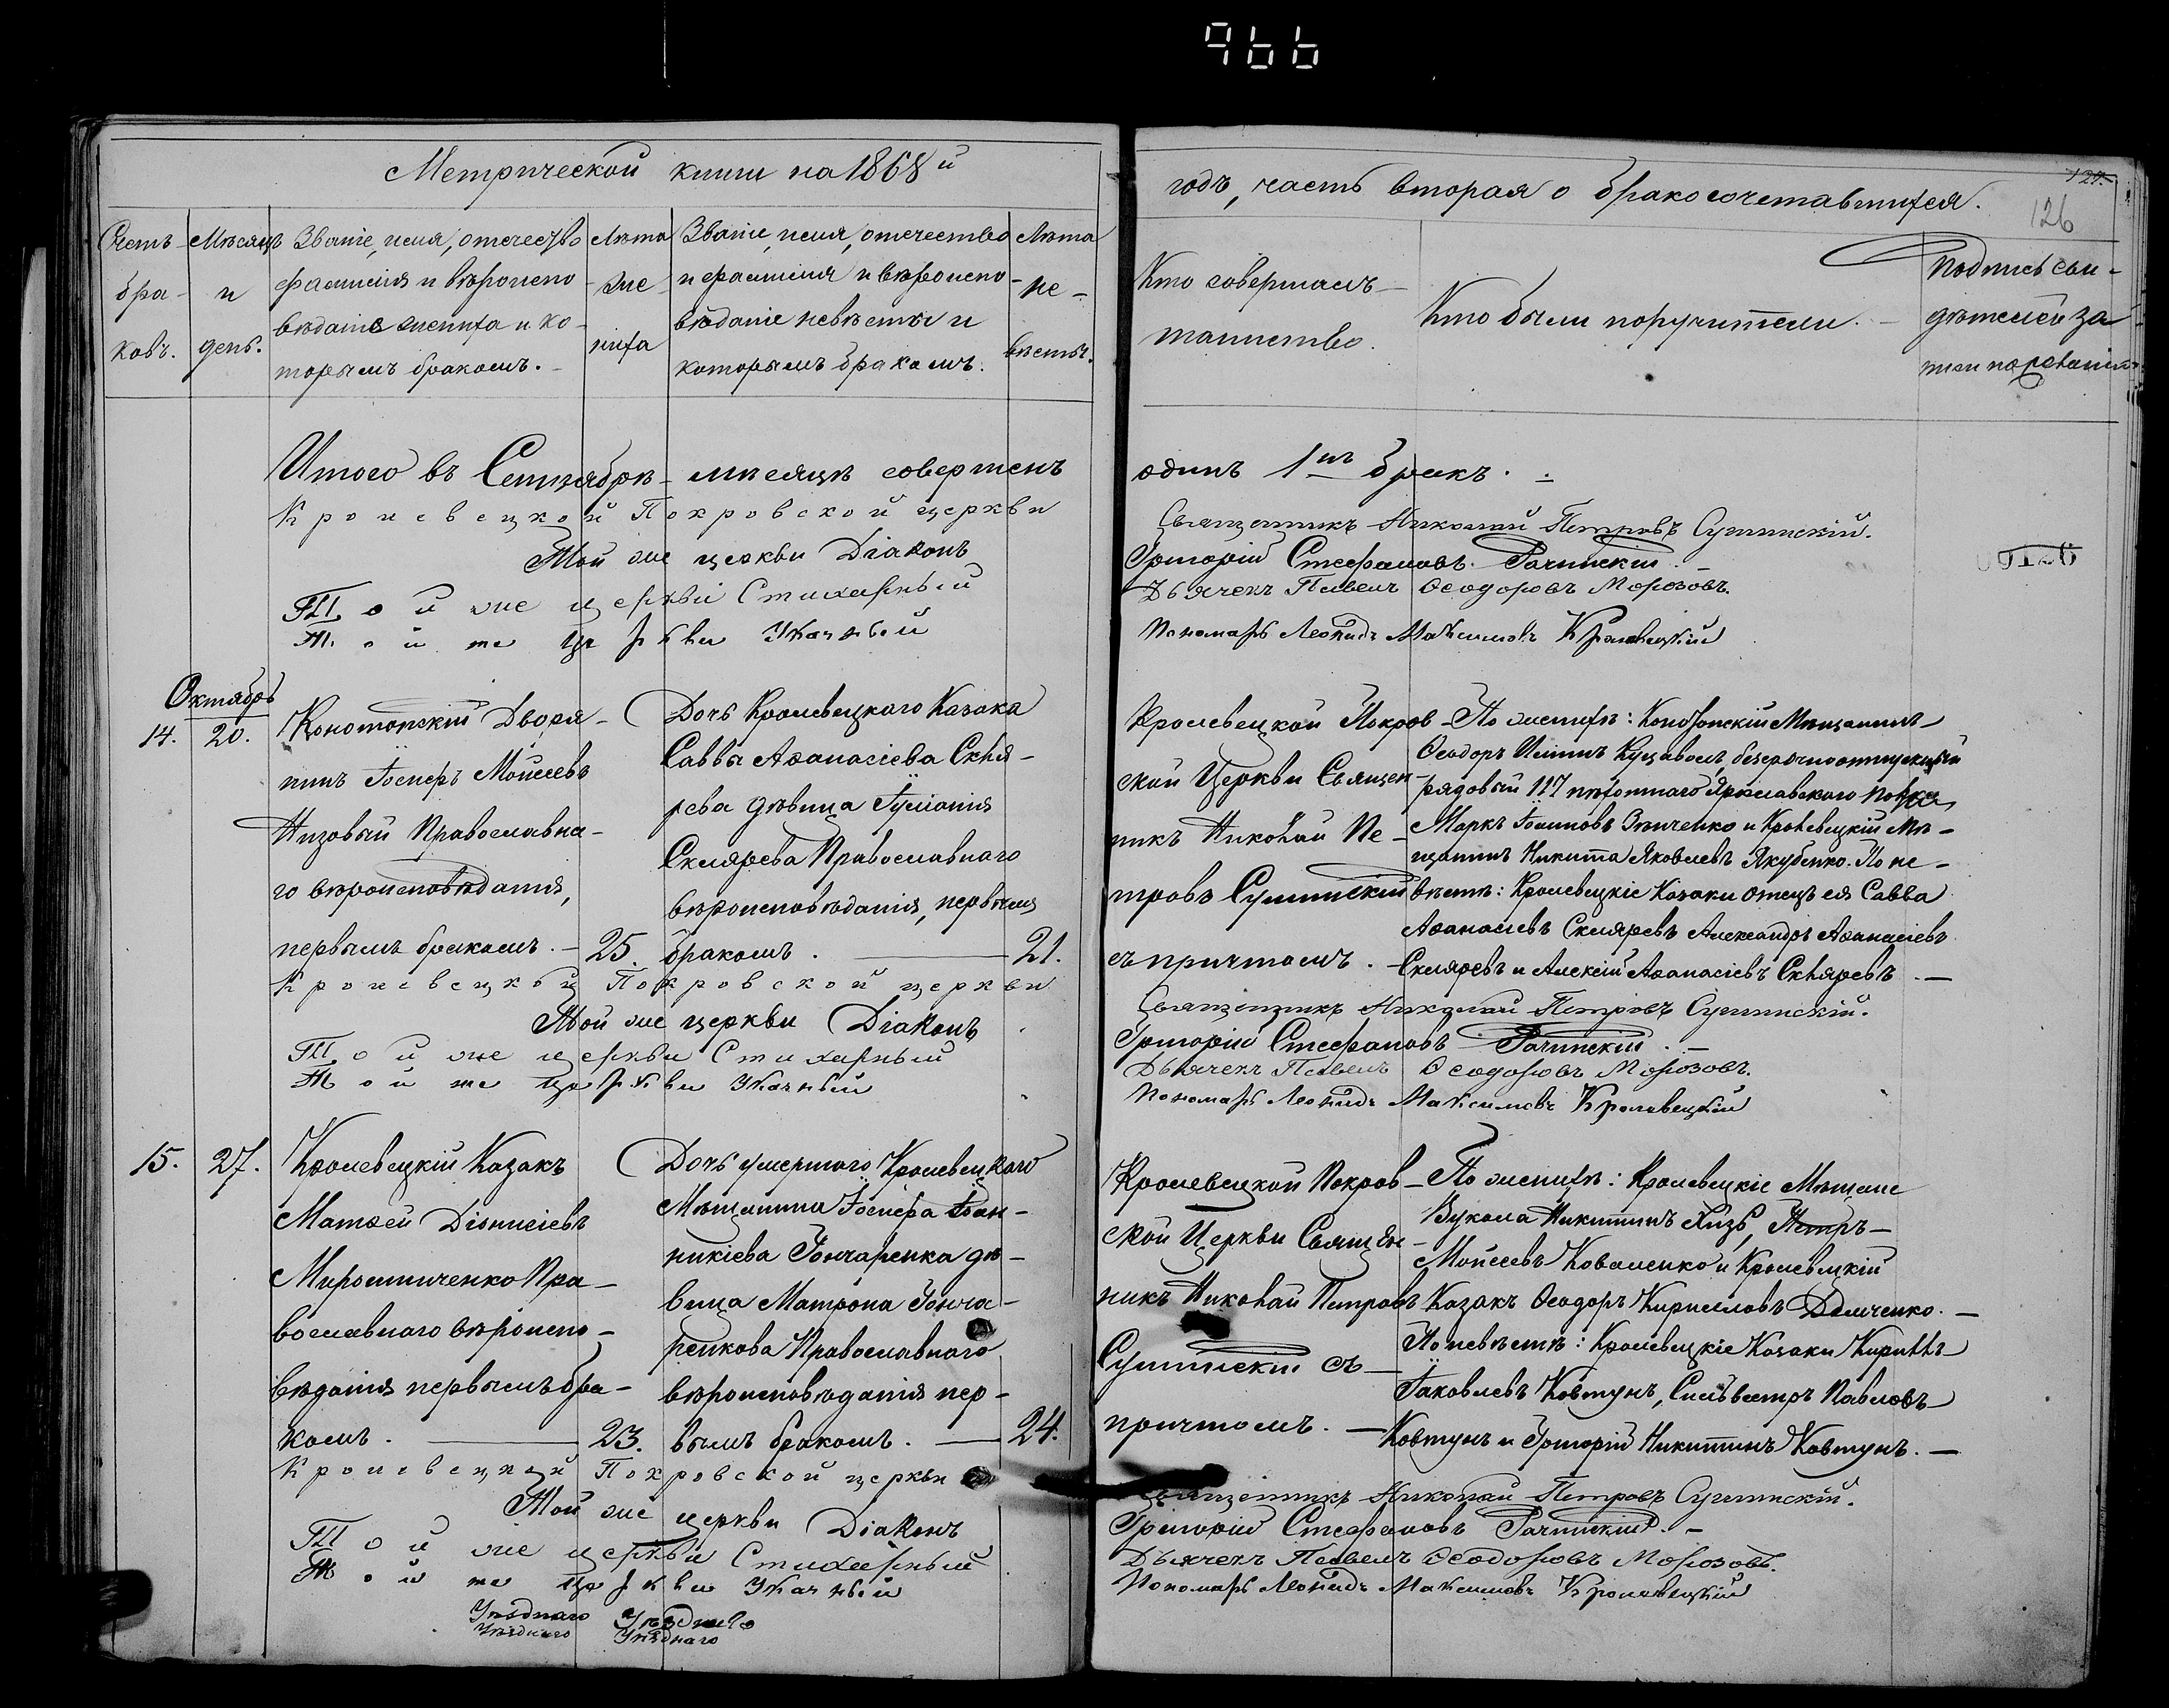 966
Метрической книги на 1868й
Счетъ браковъ.
Мѣсяцъ и день.
Званіе, имя, отечество
фамилія и вѣроиспо-
вѣданіе жениха и ко-
торымъ бракомъ.
Лѣта жениха
Званіе, имя, отечество
и фамилія и вѣроиспо-
вѣданіе невѣсты и
которымъ бракомъ.
Лѣта невѣсты.
годъ, часть вторая о бракосочетавшихся.
126
Кто совершалъ
таинство.
Кто были поручители.
Подпись сви-
дѣтелей за-
писи
Итого въ Сентябрѣ мѣсяцѣ совершенъ одинъ 1нъ бракъ.
Кролевецкой Покровской церкви Священникъ Николай Петровъ Сушинскій.
Той же церкви Діаконъ Григорій Стефановъ Рачинскій.
Той же церкви Стихарный Дьячекъ Павелъ Ѳеодоровъ Морозовъ.
Той же церкви Указный Пономарь Леонидъ Максимовъ Кролевецкій
00126
Октябрь
14. 20.
Конотопскій Дворя-
нинъ Іосифъ Мойсеевъ
Низовый Православна-
го вѣроисповѣданія,
первымъ бракомъ. - 25.
Дочь Кролевецкаго Казака
Саввы Аѳанасіева Скля-
рева дѣвица Іуліанія
Склярева Православнаго
вѣроисповѣданія, первымъ
бракомъ. 21.
Кролевецкой Покров-
ской Церкви Священ-
никъ Николай Пе-
тровъ Сушинскій
съ причтомъ.
По женихѣ: Конотопскій Мѣщанинъ
Ѳеодоръ Илiинъ безсрочноотпускный
рядовый 117 пѣхотнаго Ярославскаго полка
Маркъ Зѣнченко и Кролевецкій Мѣ-
щанинъ Никита Яковлевъ Якубенко. По не-
вѣстѣ: Кролевецкіе Козаки отецъ ея Савва
Аѳанасіевъ Скляревъ Александръ Аѳанасіевъ
Скляревъ и Алексій Аѳанасіевъ Скляревъ.
Кролевецкой Покровской церкви Священникъ Николай Петровъ Сушинскій.
Той же церкви Діаконъ Григорій Стефановъ Рачинскій.
Той же церкви Стихарный Дьячекъ Павелъ Ѳеодоровъ Морозовъ.
Той же церкви Указный Пономарь Леонидъ Максимовъ Кролевецкій
15. 27.
Кролевецкій Казакъ
Матѳей Діонисіевъ
Мирошниченко Пра-
вославнаго вѣроиспо-
вѣданія первымъ бра-
комъ. 23.
Дочь умершаго Кролевецкаго
Мѣщанина Іосифа Іоан-
никіева Гончаренка дѣ-
вица Матрона Гонча-
ренкова Православнаго
вѣроисповѣданія пер-
вымъ бракомъ. 24.
Кролевецкой Покров-
ской Церкви Священ-
никъ Николай Петровъ
Сушинскій съ
причтомъ.
По женихѣ: Кролевецкіе Мѣщане
Вукола Никитинъ Петръ
Мойсеевъ Коваленко и Кролевецкій
Казакъ Ѳеодоръ Кирилловъ Демченко.
По невѣстѣ: Кролевецкіе Козаки Кириллъ
Іаковлевъ Ковтунъ, Сильвестръ Павловъ
Ковтунъ и Григорій Никитинъ Ковтунъ.
Кролевецкой Покровской церкви Священникъ Николай Петровъ Сушинскій.
Той же церкви Діаконъ Григорій Стефановъ Рачинскій.
Той же церкви Стихарный Дьячекъ Павелъ Ѳеодоровъ Морозовъ.
Той же церкви Указный Пономарь Леонидъ Максимовъ Кролевецкій
Уѣзднаго Уѣзднаго
Уѣзднаго Уѣзднаго